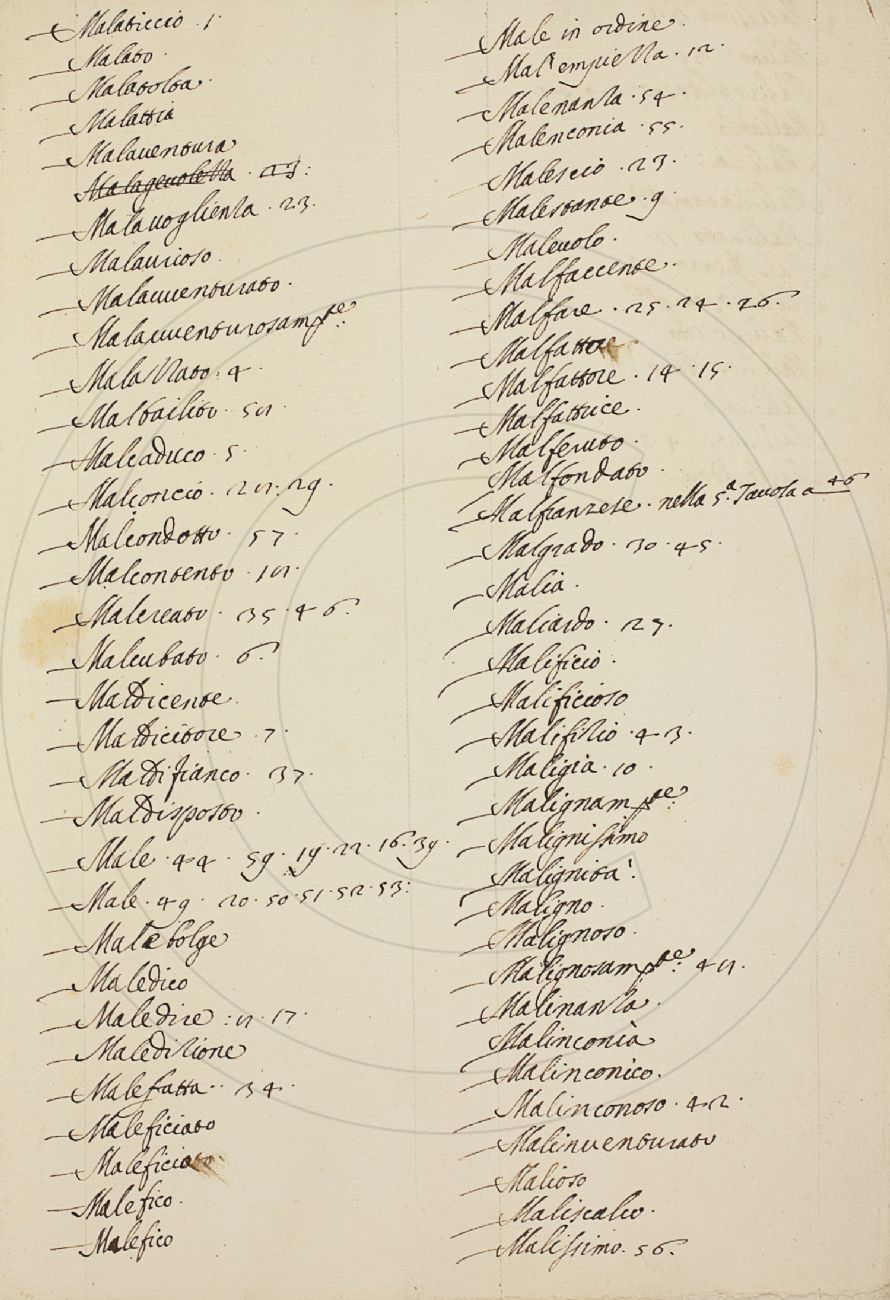 Malaticcio · 1 ·
Malato ·
Malatolta ·
Malattia
Malaventura
Malagevoletta · 23 :
Malavoglienza · 23 ·
Malaurioso ·
Malauventurato ·
Malauventurosam.te :
Malazzato · 4 ·
Malbailito · 50 ·
Malcaduco · 5 ·
Malconcio · 20 : 29 ·
Malcondotto · 57 ·
Malcontento · 10 ·
Malcreato · 35 · 46 ·
Malcubato · 6 ·
Maldicente ·
Maldicitore · 7 ·
Maldifianco · 37 ·
Maldisposto ·
Male · 44 · 59 · 19 · 22 · 16 · 39 ·
Male · 49 · 20 · 50 · 51 · 52 · 53 :
Malebolge
Maledico
Maledire : 0 · 17 ·
Maledizione
Malefatta · 34 ·
Maleficiato
Maleficioso ·
Malefico ·
Malefico
Male in ordine ·
Mal'empiezza · 12 ·
Malenanza · 54 ·
Malenconia · 55 ·
Malescio · 23 ·
Malestante · 9 ·
Malevolo ·
Malfaccente ·
Malfare · 25 · 24 · 26 ·
Malfattore
Malfattore · 14 · 15 ·
Malfattrice ·
Malferuto ·
Malfondato ·
Malfranzese · nella 5.a Tavola a 46
Malgrado · 30 · 45 ·
Malia ·
Maliardo · 27 ·
Malificio ·
Malificioso
Malifizio · 43 ·
Maligia · 10 ·
Malignam.te :
Malignissimo
Malignità ·
Maligno ·
Malignoso ·
Malignosam.te : 40 ·
Malinanza ·
Malinconia
Malinconico ·
Malinconoso · 42 ·
Malinventurato
Malioso
Maliscalco ·
Malissimo · 56 ·